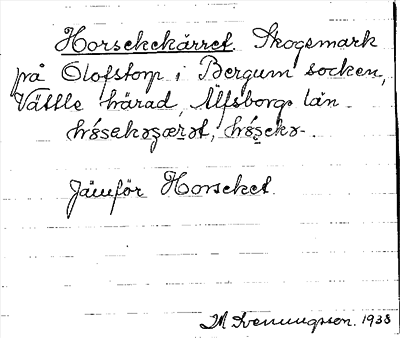 Horsekekärret. Skogsmark
på Olofstorp i Bergum socken,
Vättle härad, Älfsborgs län.
Jämför Horseket.
1938